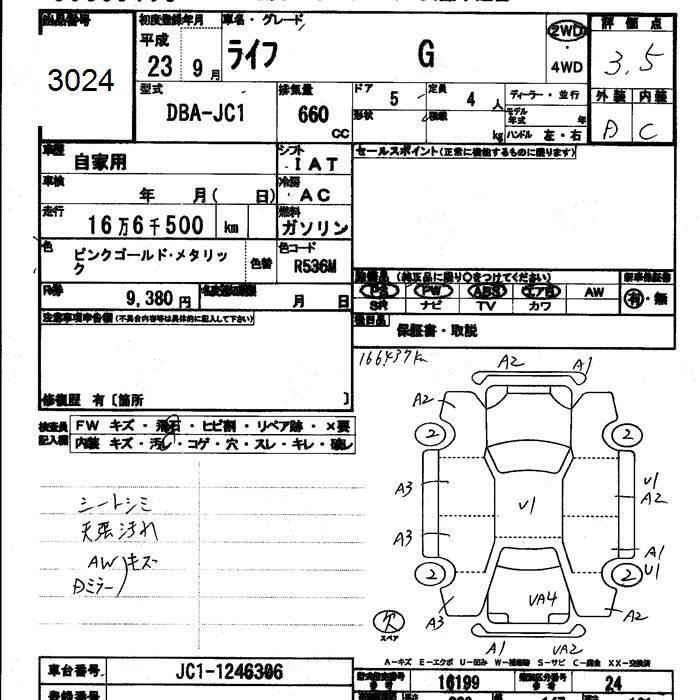 出品番号
3024
初度登録年月
平成
23 9月
車名・グレード
ライフ G
2WD
・
4WD
評価点
3.5
外装 内装
A C
型式
DBA-JC1
排気量
660
CC
ドア 5
定員 4 人
形状
積載 kg
ディーラー・並行
モデル年式 年
ハンドル 左・右
車歴
自家用
シフト
IAT
車検
年 月( 日)
冷房
AC
走行
16万6千500 km
燃料
ガソリン
色
ピンクゴールド・メタリック
色替
色コード
R536M
R券
9,380円
名義変更期限
月 日
セールスポイント(正常に機能するものに限ります)
装備品 (純正品に限り○をつけてください)
PS PW ABS エアB AW
SR ナビ TV カワ
新車保証書
有・無
後日品
保証書・取説
注意事項申告欄(不具合内容等は具体的に記入して下さい)
修復歴 有〔箇所 〕
166,437km
検査員
記入欄
FW キズ・飛石・ヒビ割・リペア跡・×要
内装 キズ・汚レ・コゲ・穴・スレ・キレ・破レ
シートシミ
天張汚れ
AW
Dミラー
キズ
A2
A1
A2
2
2
A3
U1
A2
U1
A3
A1
U1
2
2
A3
UA4
A2
A1
UA2
欠
スペア
A-キズ E-エクボ U-凹ミ W-補修跡 S-サビ C-腐食 XX-交換済
車台番号
JC1-1246306
型式指定番号
16199
類別区分番号
24
登録番号